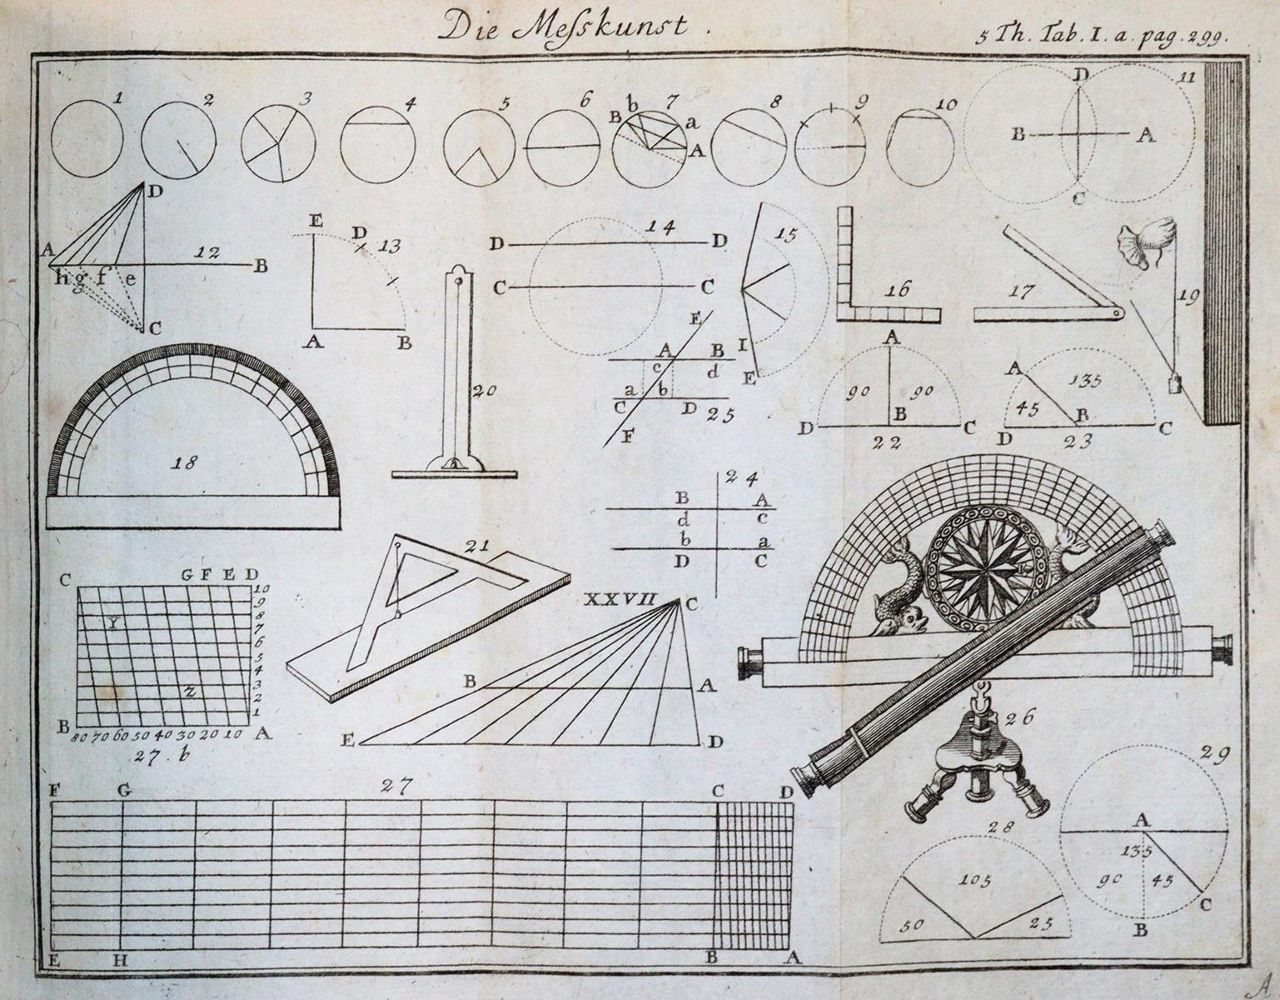 Die Meſskunst.
5 Th. Tab. I. a. pag. 299.
1 2 3 4 5 6 7 8 9 10 11
B b a A
D B A C
D A h g f e C 12 B
E D 13 A B
D 14 D
C C
15 I E
16
17
19
18
20
E A B c d a b C D 25 F
A 90 90 D B C 22
A 135 45 B D C 23
24
B A
d c
b a
D C
21
C G F E D
10
9
8
7
6
5
4
3
2
1
Y
Z
B 80 70 60 50 40 30 20 10 A
27. b
XXVII C
B A
E D
26
F G 27 C D
E H B A
28
105
50 25
29
A
135
90 45
C
B
A